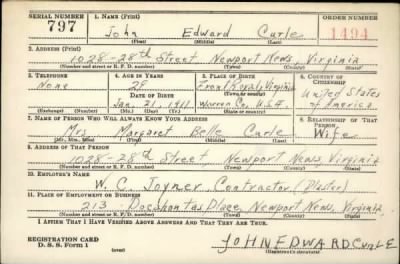 SERIAL NUMBER 1. NAME (Print) ORDER NUMBER
797 John Edward Curle 1494
(First) (Middle) (Last)
2. ADDRESS (Print)
1028-28th Street, Newport News, Virginia
(Number and street or R. F. D. number) (Town) (County) (State)
3. TELEPHONE 4. AGE IN YEARS 5. PLACE OF BIRTH 6. COUNTRY OF CITIZENSHIP
None 29 Front Royal, Virginia United States
DATE OF BIRTH
Jan. 21, 1911 Warren Co. U.S.A. of America
(Exchange) (Number) (Mo.) (Day) (Yr.) (State or country)
7. NAME OF PERSON WHO WILL ALWAYS KNOW YOUR ADDRESS 8. RELATIONSHIP OF THAT PERSON
Mrs Margaret Belle Curle Wife
(Mr., Mrs., Miss) (First) (Middle) (Last)
9. ADDRESS OF THAT PERSON
1028-28th Street Newport News, Virginia
(Number and street or R. F. D. number) (Town) (County) (State)
10. EMPLOYER'S NAME
W. C. Joyner, Contractor,
11. PLACE OF EMPLOYMENT OR BUSINESS
213 - Pocahontas Place, Newport News, Virginia
(Number and street or R. F. D. number) (Town) (County) (State)
I AFFIRM THAT I HAVE VERIFIED ABOVE ANSWERS AND THAT THEY ARE TRUE.
REGISTRATION CARD
D. S. S. Form 1 (over) JOHN EDWARD CURLE
(Registrant's signature)